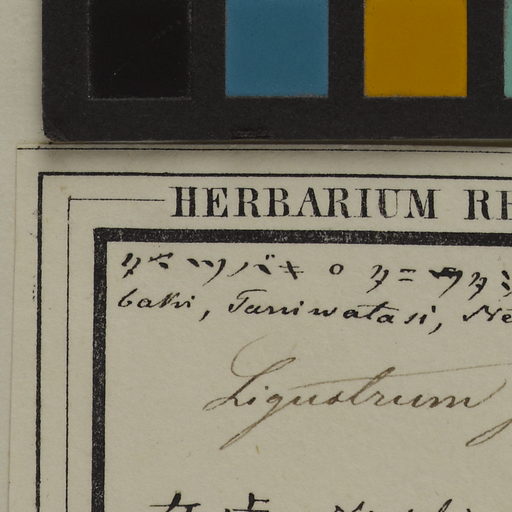 HERBARIUM
タマツバキ ○ タニワタ
baki, Taniwatasi, Ne
Ligustrum